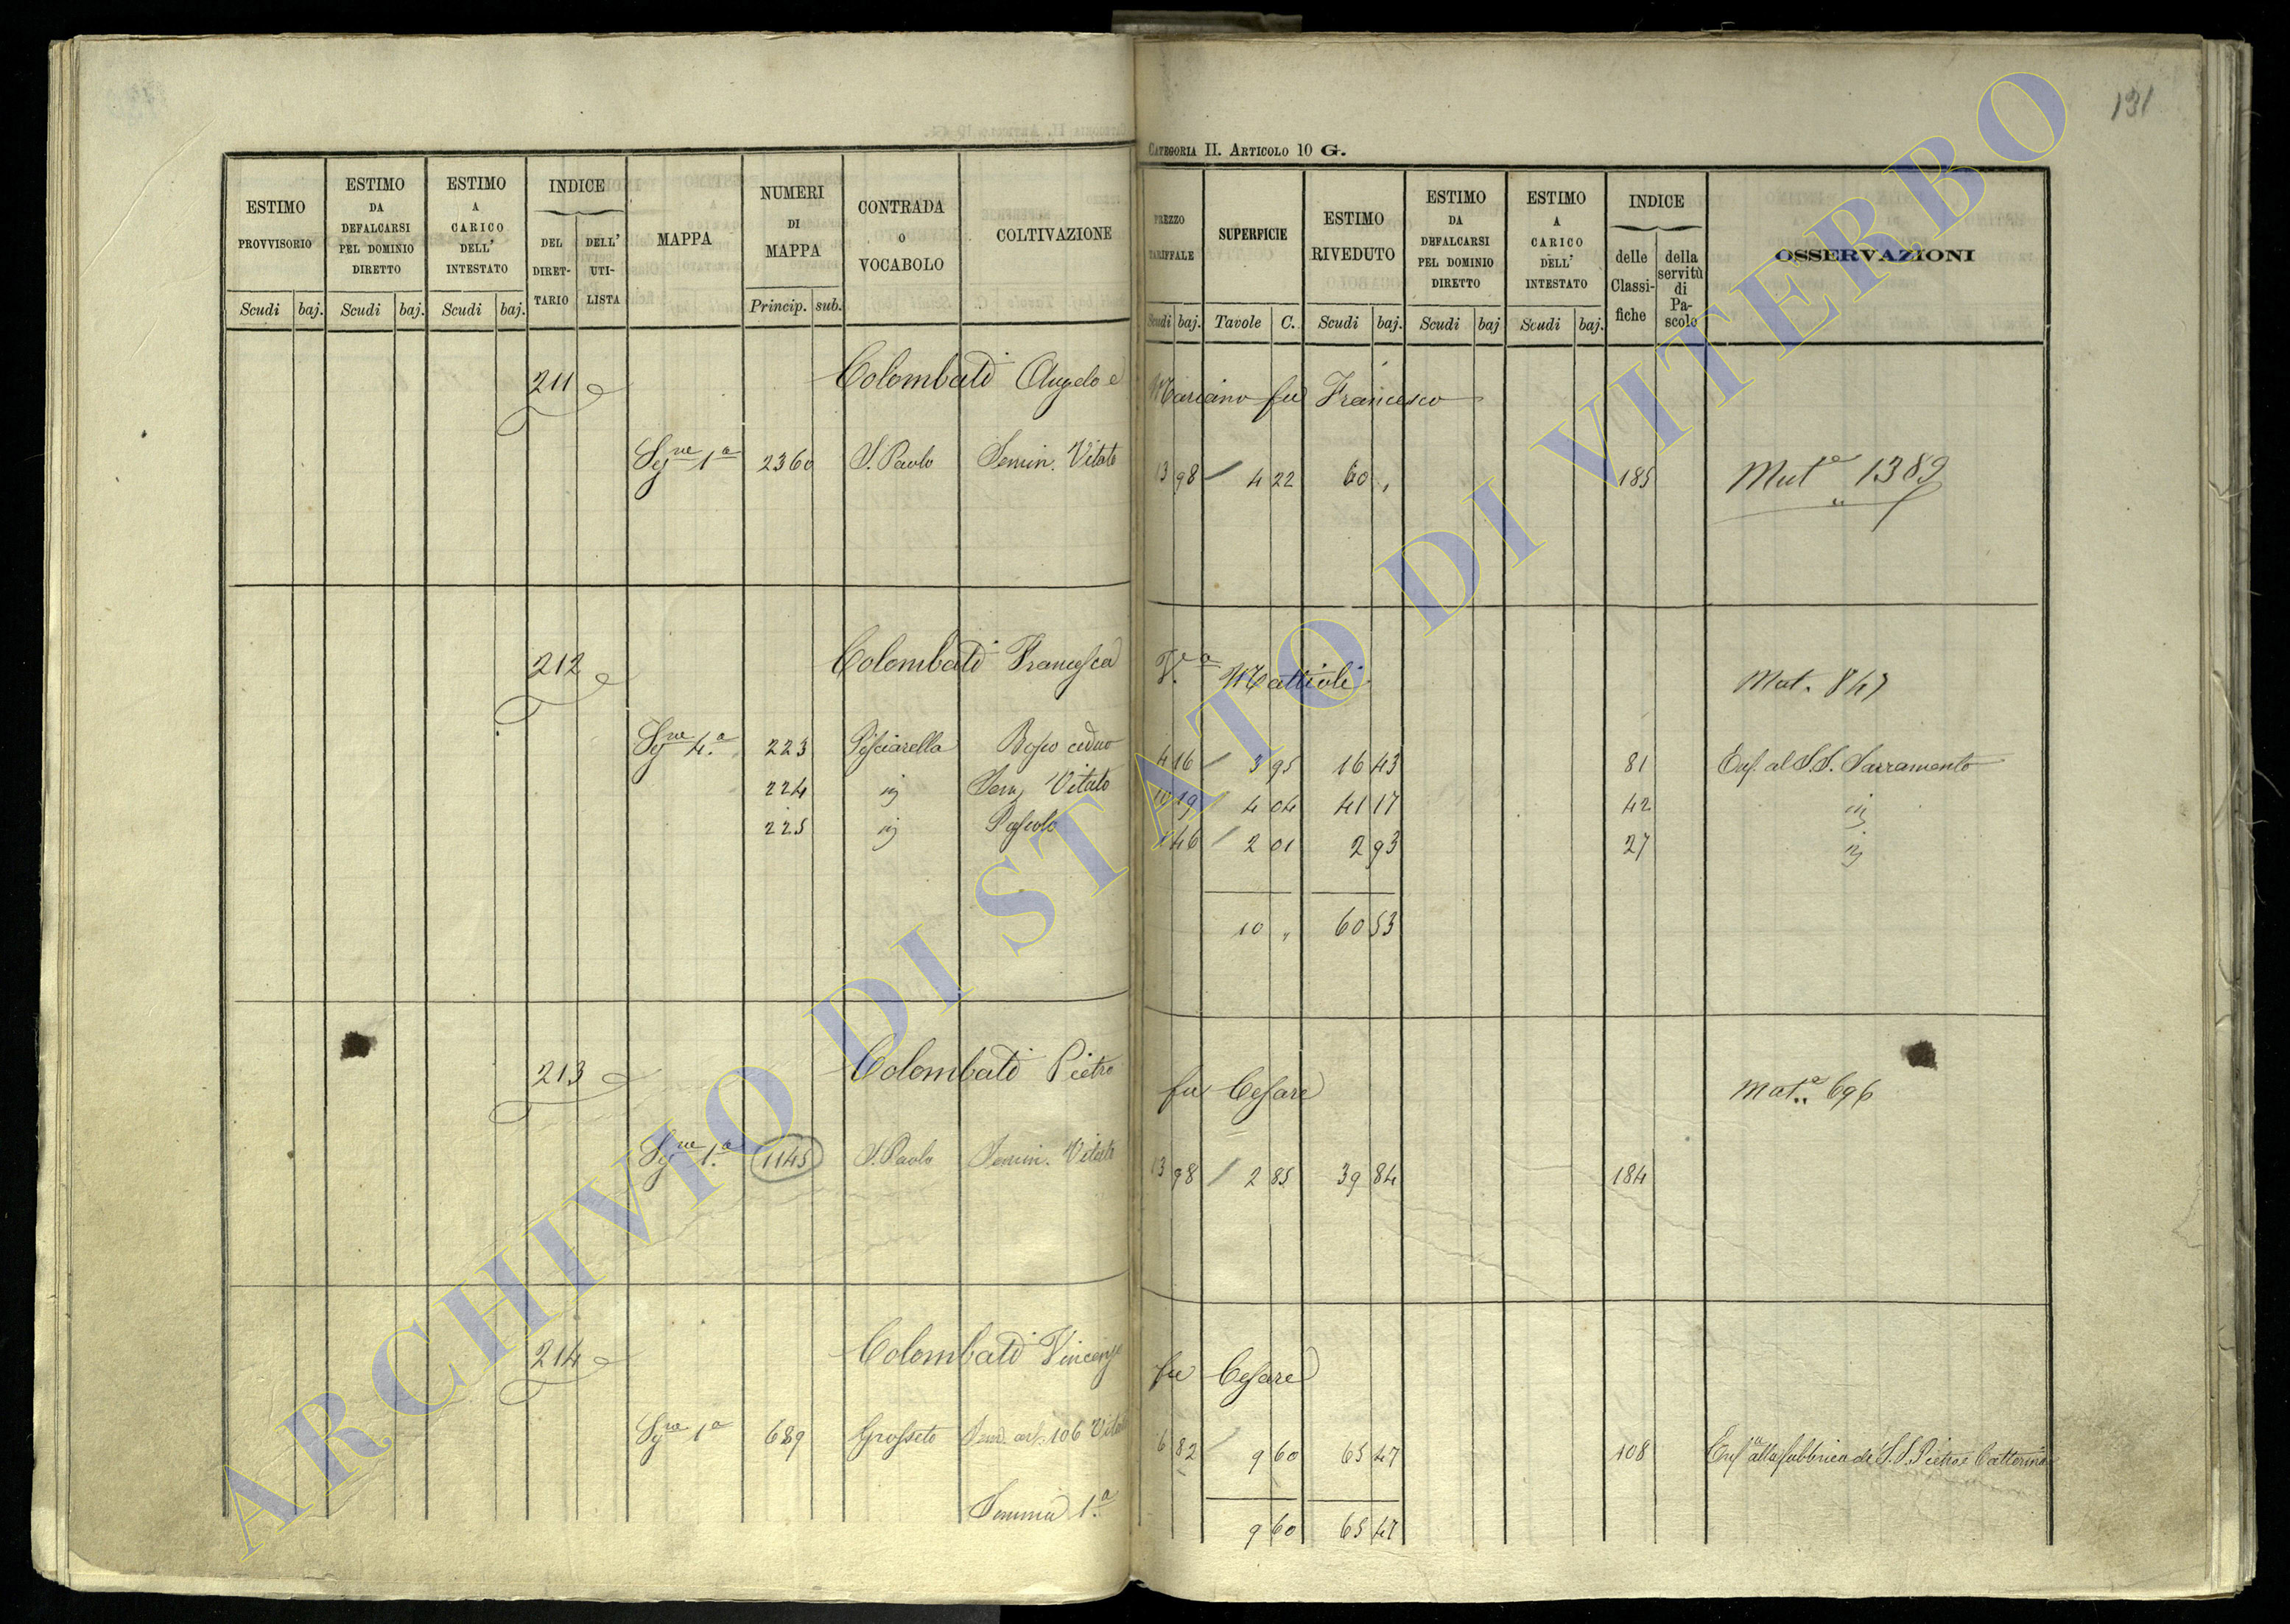 131
CATEGORIA II. ARTICOLO 10 G.
ESTIMO PROVVISORIO Scudi baj. | ESTIMO DA DEFALCARSI PEL DOMINIO DIRETTO Scudi baj. | ESTIMO A CARICO DELL' INTESTATO Scudi baj. | INDICE DEL DIRETTARIO DELL' UTILISTA | MAPPA | NUMERI DI MAPPA Princip. sub. | CONTRADA O VOCABOLO | COLTIVAZIONE | PREZZO TARIFFALE Scudi baj. | SUPERFICIE Tavole C. | ESTIMO RIVEDUTO Scudi baj. | ESTIMO DA DEFALCARSI PEL DOMINIO DIRETTO Scudi baj | ESTIMO A CARICO DELL' INTESTATO Scudi baj. | INDICE delle Classifiche della servitù di Pascolo | OSSERVAZIONI
211 Colombati Angelo e Mariano fu Francesco
Sez.ne 1.a 2360 S. Paolo Semin. Vitato 13 98 4 22 60 , 185 Mut.e 1389
212 Colombati Francesca V.a Mattioli Mut. 847
Sez.ne 4.a 223 Pisciarella Bosco ceduo 4 16 3 95 16 43 81 Enf. al S.S. Sacramento
224 iij Sem. Vitato 10 19 4 04 41 17 42 iij
225 iij Pascolo 1 46 2 01 2 93 27 iij
10 „ 60 53
213 Colombati Pietro fu Cesare Mut.e 696
Sez.ne 1.a 1145 S. Paolo Semin. Vitato 13 98 2 85 39 84 184
214 Colombati Vincenzo fu Cesare
Sez.ne 1.a 689 Grosseto 106 6 82 9 60 65 47 108 Enf.a alla fabbrica di S.S. Pietro e Catterina
Somma 1.a 9 60 65 47
ARCHIVIO DI STATO DI VITERBO